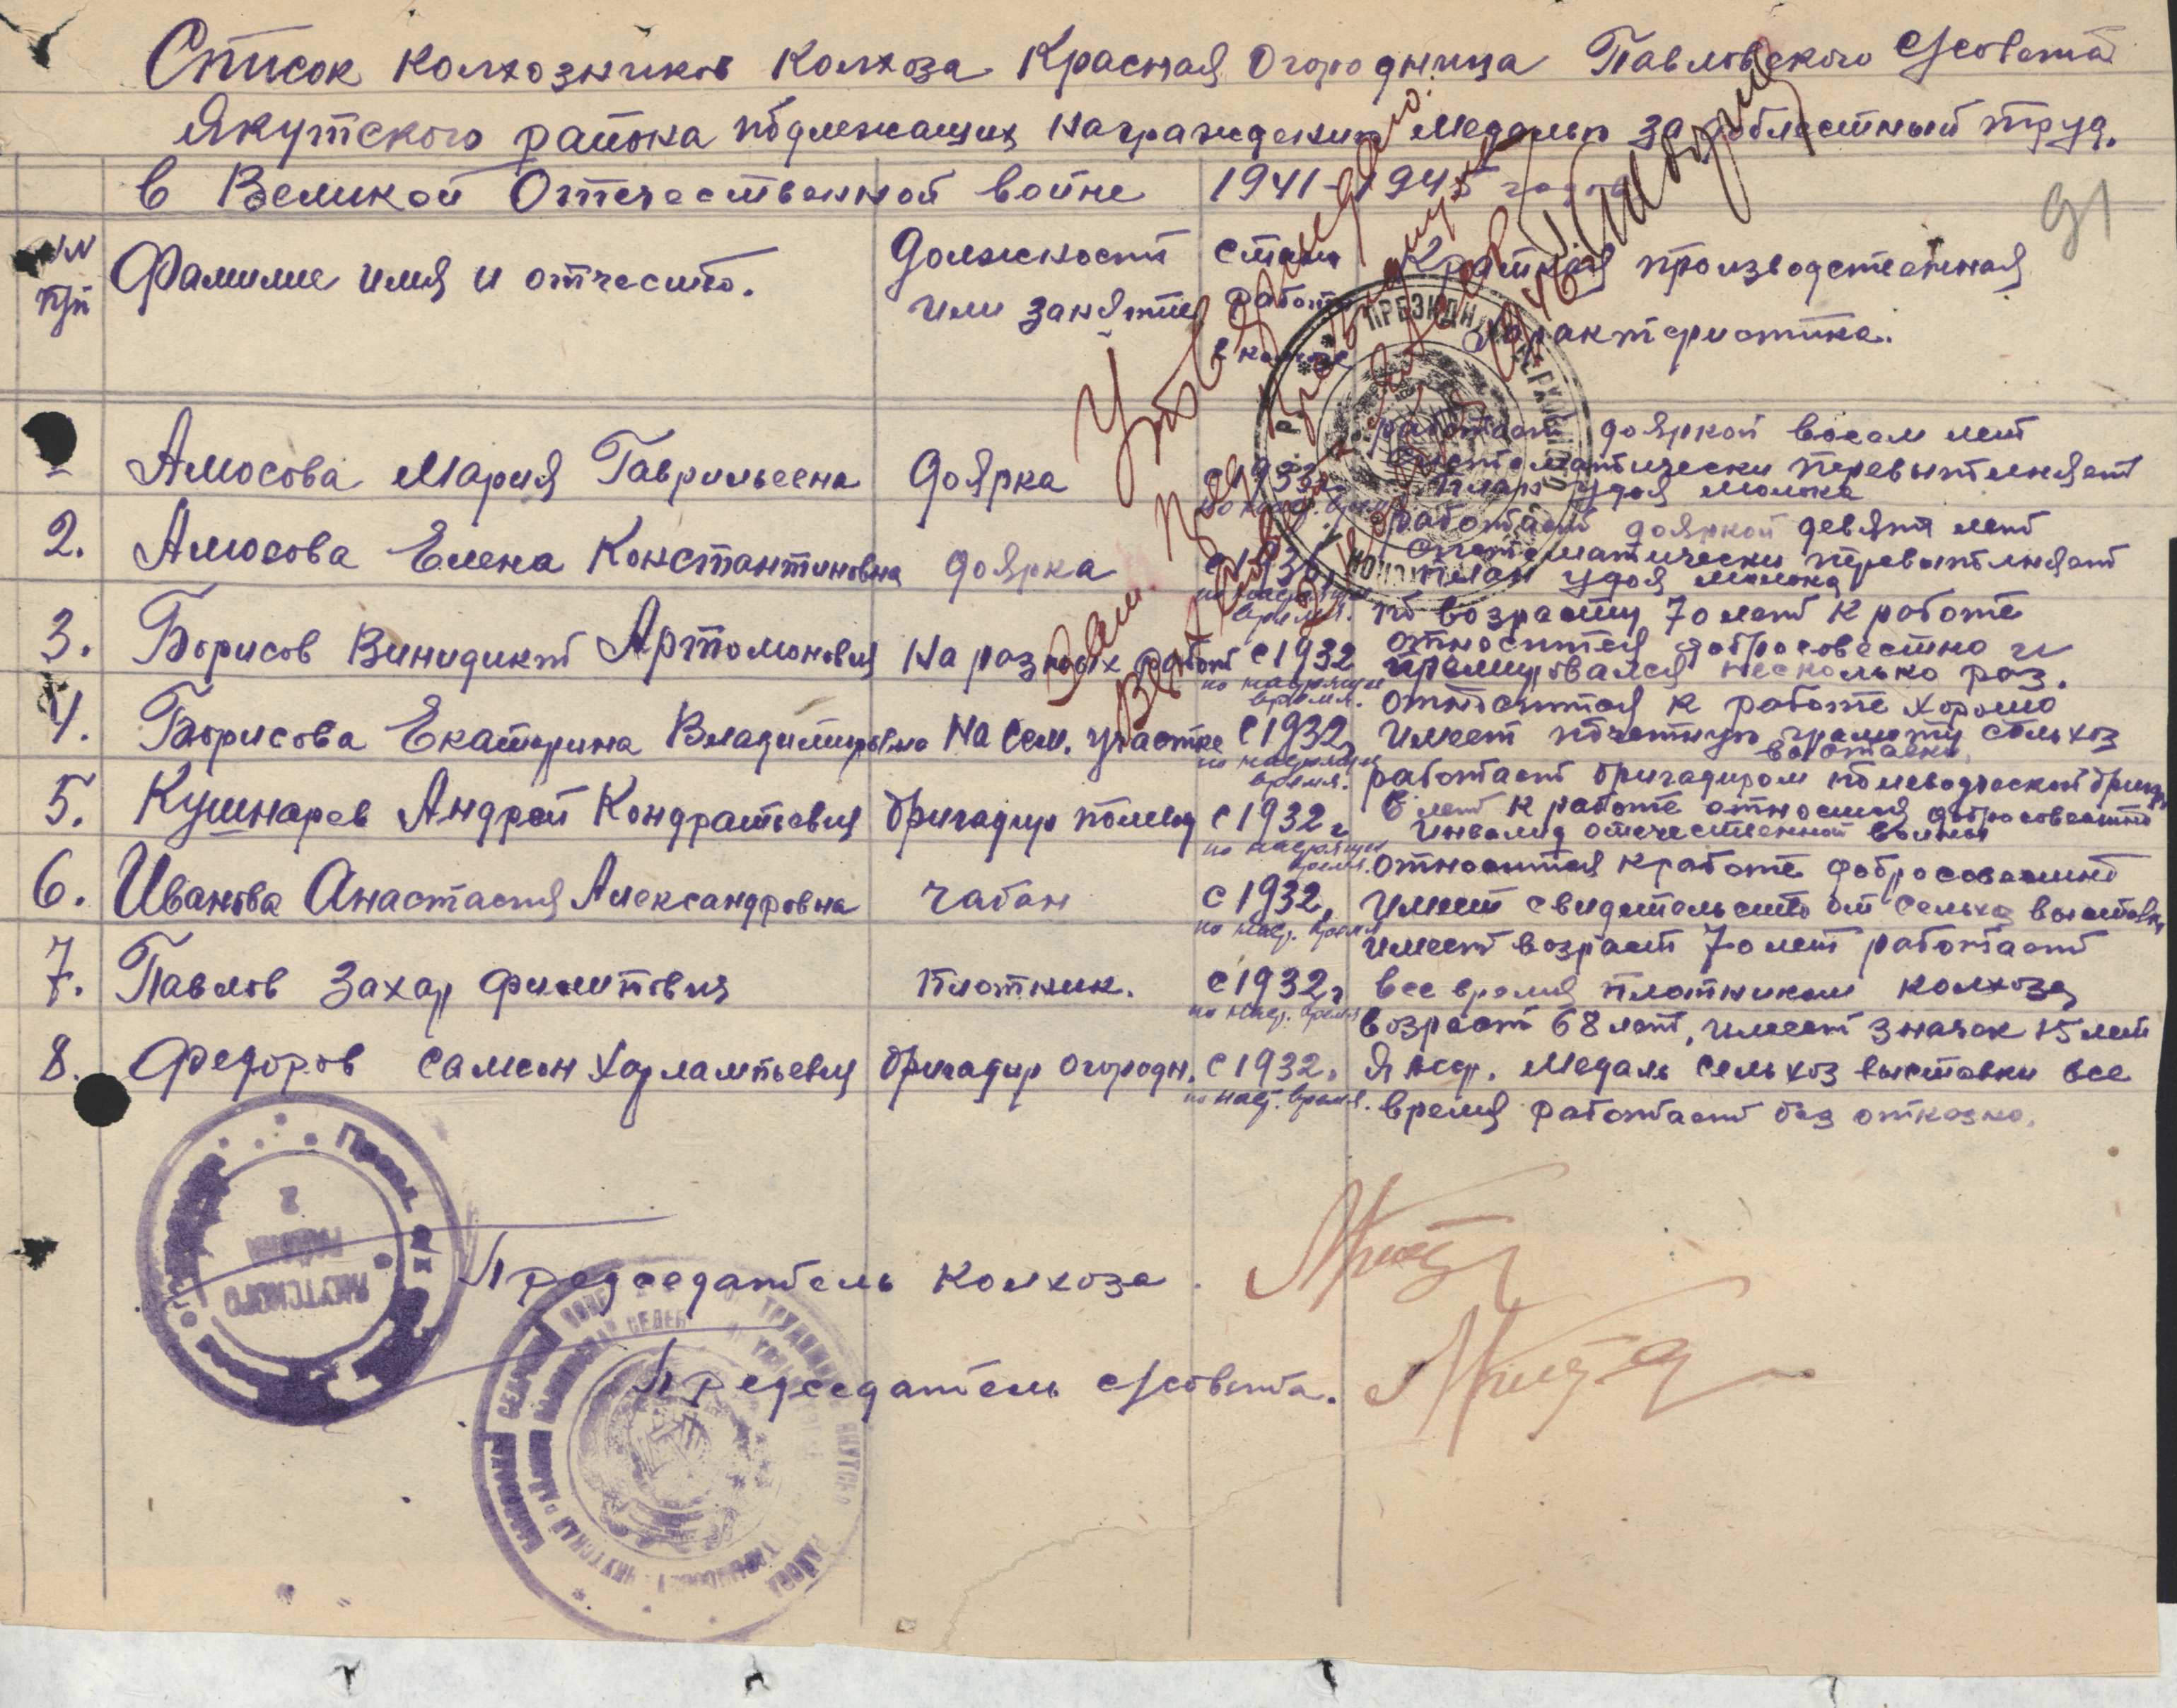 Список колхозников колхоза Красная Огородница Павловского с/совета
Якутского района подлежащих награждению медалью за доблестный труд.
в Великой Отечественной войне 1941-1945 годов
91
NN п/п
Фамилие имя и отчество.
Должность или занятие
Стаж работы в колхозе
Краткая производственная характеристика.
1 Амосова Мария Гаврильевна доярка с 1933г. по наст. время
работает дояркой восем лет
систематически перевыполняет
план удоя молока
2. Амосова Елена Константиновна доярка с 193 по настоящее время.
работает дояркой девять лет
систематически перевыполняет
план удоя молока
3. Борисов Винидикт Артомонович на разных работ с 1932 по настоящее время.
по возрасту 70 лет к работе
относится добросовестно и
премировался несколько раз.
4. Борисова Екатерина Владимировна на сем. участке с 1932, по настоящее время.
относится к работе хорошо
имеет почетную грамоту сельхоз
выставки.
5. Кушнарев Андрей Кондратьевич бригадир полевод с 1932г по настоящее время.
работает бригадиром полеводческой бригады
6 лет к работе относится добросовестно
инвалид отечественной войны
6. Иванова Анастасия Александровна чабан с 1932, по наст. время
относится к работе добросовестно
имеет свидетельство от сельхоз выставки
7. Павлов Захар Филипович плотник. с 1932г по наст. время
имеет возраст 70 лет работает
все время плотником колхоза
8. Федоров Самсон Харлампьевич бригадир огородн. с 1932, по наст. время.
возраст 68 лет, имеет значок 15 лет
Я АССР. медаль сельхоз выставки все
время работает без отказно.
Утверждено:
Зам. Пред. Президиума
Верховного Совета
ПРЕЗИДИУМ ВЕРХОВНОГО
ЯКУТСКОГО
РАЙОНА
Председатель колхоза.
Председатель с/совета.